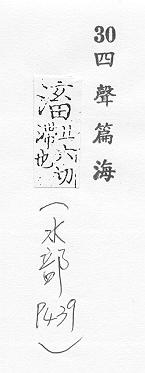 30四聲篇海
丑六切
滯也
(水部P439)